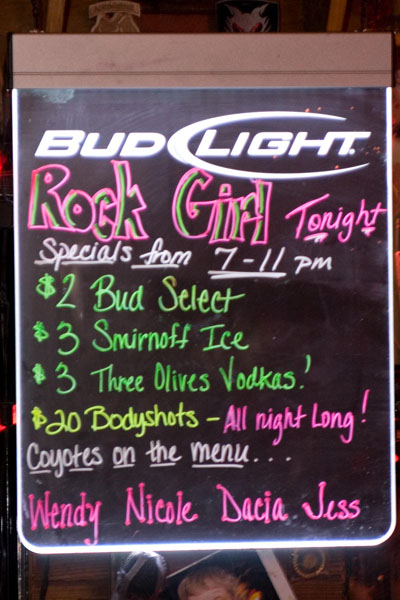 BUD LIGHT
Rock Girl Tonight
Specials from 7-11 pm
$2 Bud Select
$3 Smirnoff Ice
$3 Three Olives Vodkas!
$20 Bodyshots - All night Long!
Coyotes on the menu...
Wendy Nicole Dacia Jess